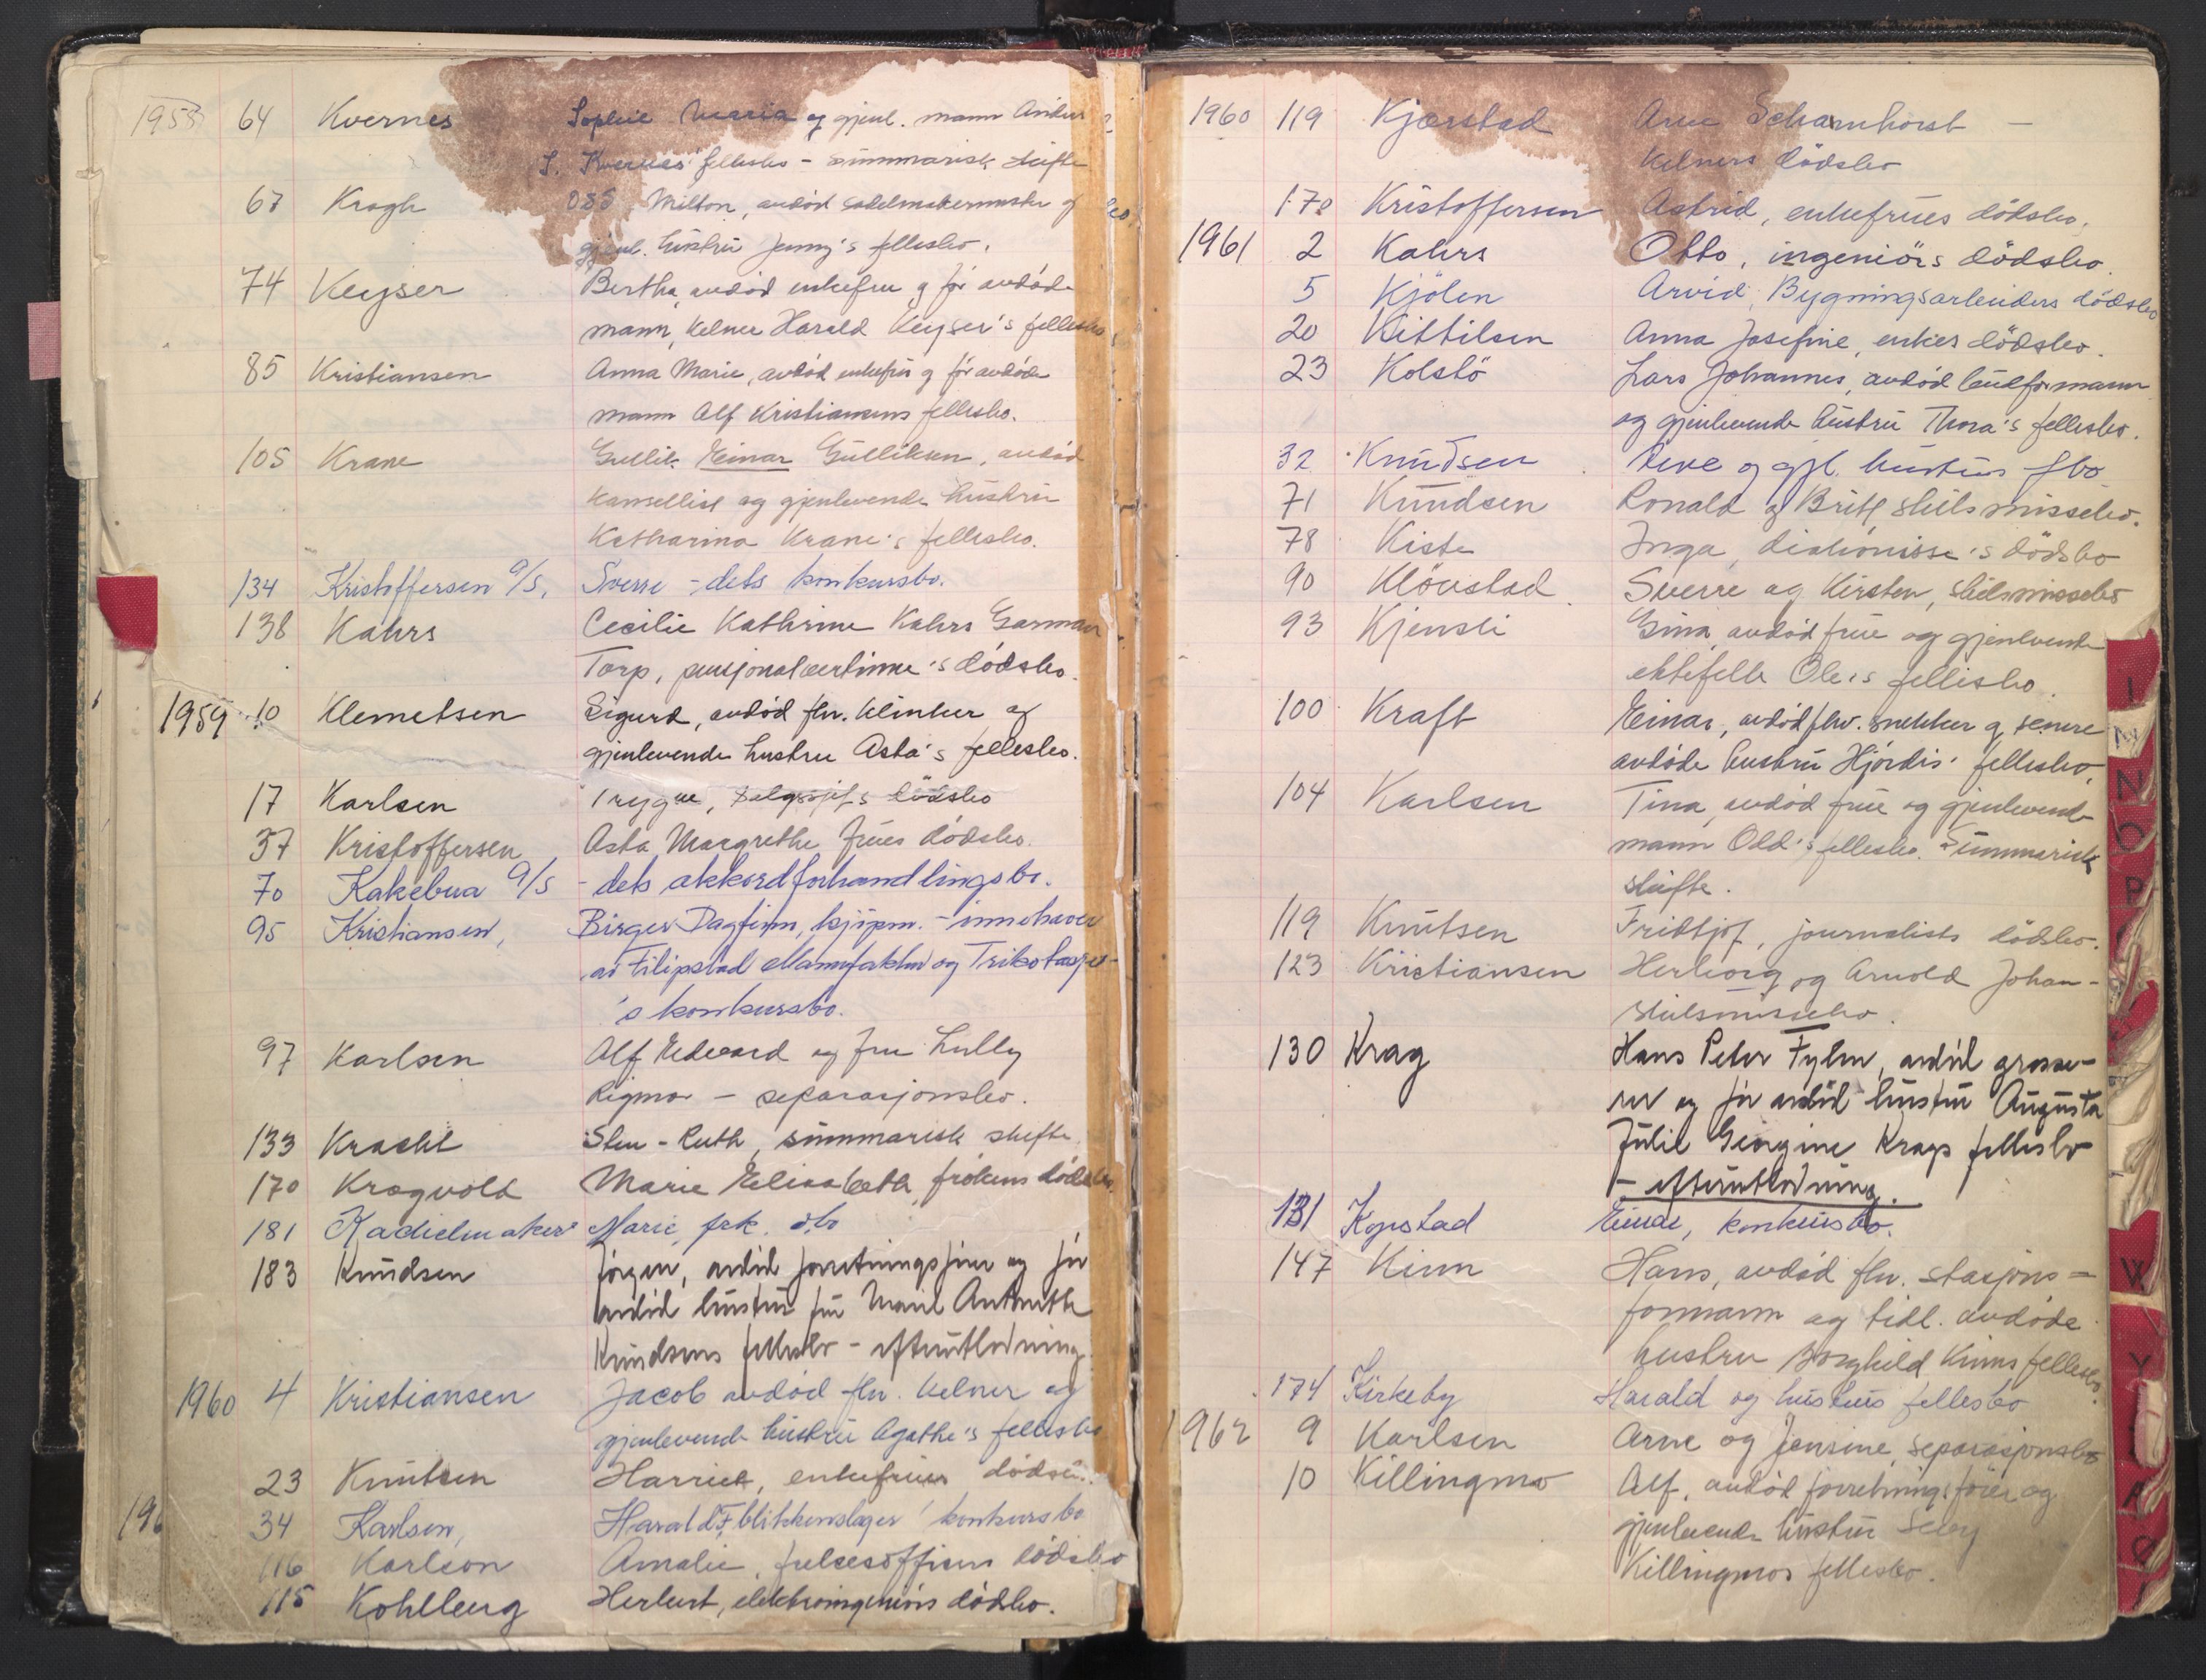 1958 64 Kvernes Sophie Maria og gjenl. mann
S. Kvernes' fellesbo - summarisk skifte
67 Krogh Milton, avdød sadelmakermester og
gjenl. hustru Jenny's fellesbo.
74 Keyser Bertha, avdød enkefru og før avdøde
mann, kelner Harald Keyser's fellesbo
85 Kristiansen Anna Marie, avdød enkefru og før avdøde
mann Alf Kristiansens fellesbo.
105 Krane Gullik Einar Gulliksen, avdød
kansellist og gjenlevende hustru
Katharina Krane's fellesbo.
134 Kristoffersen A/S, Sverre - dets konkursbo.
138 Kahrs Cecilie Kathrine Kahrs Garman
Torp, pensjonatvertinne's dödsbo.
1959 10 Klemetsen Sigurd, avdød fhv. klinker og
gjenlevende hustru Asta's fellesbo.
17 Karlsen Trygve, salgssjefs dödsbo
37 Kristoffersen Asta Margrethe frues dödsbo.
70 Kakebua A/S - dets akkordforhandlingsbo.
95 Kristiansen, Birger Dagfinn, kjøpm. - innehaver
av Filipstad Manufaktur og Trikotasje-
's konkursbo.
97 Karlsen Alf Edvard og fru Lully
Rigmor - separasjonsbo.
133 Kracht Sten - Ruth, summarisk skifte
170 Krogvold Marie Elisabeth, frökens dödsbo
181 Kadielmaker Marie, frk. d.bo
183 Knudsen Jørgen, avdöd forretningsfører og før
avdöd hustru fru Marie Antonette
Knudsens fellesbo - efterutlodning.
1960 4 Kristiansen Jacob avdød fhv. kelner og
gjenlevende hustru Agathe's fellesbo
23 Knutsen Harriet, enkefrues dødsbo
196
34 Karlsen, Harald F. blikkenslager' konkursbo
116 Karlson Amalie, frelsesoffisers dödsbo
115 Kohlberg Herbert, elektroingeniörs dödsbo.
1960 119 Kjærstad Arne Scharnhorst -
kelners dödsbo
170 Kristoffersen Astrid, enkefrues dödsbo.
1961 2 Kahrs Otto, ingeniörs dödsbo.
5 Kjölen Arvid, Bygningsarbeiders dödsbo
20 Kittilsen Anna Josefine, enkes dödsbo.
23 Kolstö Lars Johannes, avdöd baneformann
og gjenlevende hustru Thora's fellesbo.
32 Knudsen og gjl. hustrus fbo
71 Knudsen Ronald og Britt skilsmissebo.
78 Kiste Inga, diakonisse's dödsbo
90 Klövstad Sverre og Kirsten, skilsmissebo
93 Kjensli Gina, avdöd frue og gjenlevende
ektefelle Ole's fellesbo.
100 Kraft Einar, avdöd fhv. snekker og senere
avdöde hustru Hjördis' fellesbo.
104 Karlsen Tina, avdöd frue og gjenlevende
mann Old's fellesbo. Summarisk
skifte.
119 Knutsen Fridtjof, journalists dödsbo.
123 Kristiansen Herborg og Arnold Johan -
skilsmissebo.
130 Krag Hans Peter Fylm, avdöd grosse-
rer og før avdöd hustru Augusta
Julie Georgine Krags fellesbo
- efterutlodning.
131 Kopstad Einar, konkursbo.
147 Kinn Hans, avdød fhv. stasjons-
formann og tidl. avdøde
hustru Borghild Kinns fellesbo.
174 Kirkeby Harald og hustrus fellesbo
1962 9 Karlsen Arne og Jensine, separasjonsbo
10 Killingmo Alf, avdöd forretningsförer og
gjenlevende hustru Selby
Killingmos fellesbo.
I
N
O
P
W
Y